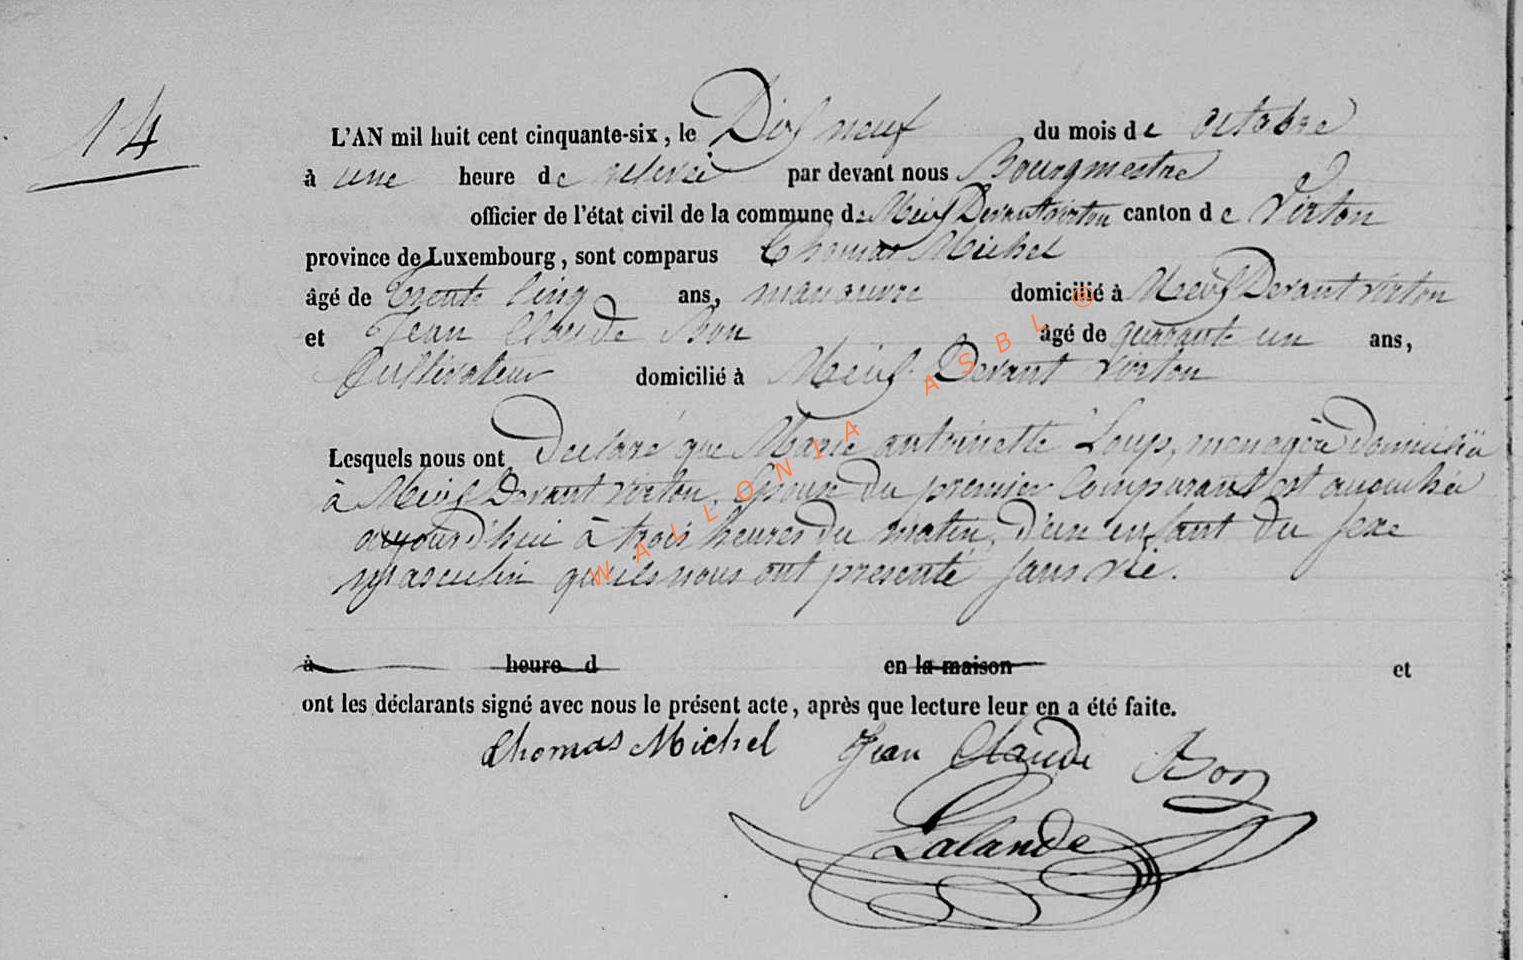 14
L'AN mil huit cent cinquante-six, le Dix neuf du mois de octobre
à une heure de relevée par devant nous Bourgmestre
officier de l'état civil de la commune de Meix Devant virton canton de Virton
province de Luxembourg, sont comparus Thomas Michel
âgé de Trente Cinq ans, manoeuvre domicilié à Meix Devant virton
et Jean Claude Bon âgé de quarante un ans,
Cultivateur domicilié à Meix Devant Virton
Lesquels nous ont Declaré que Marie antoinette Loup, menagère Domiciliée
à Meix Devant virton, Epouse du premier Comparant est accouchée
aujourd'hui à trois heures du matin, d'un enfant du sexe
masculin qu'ils nous ont presenté sans vie.
à heure d en la maison et
ont les déclarants signé avec nous le présent acte, après que lecture leur en a été faite.
Thomas Michel Jean Claude Bon
Lalande
WALLONIA ASBL ®